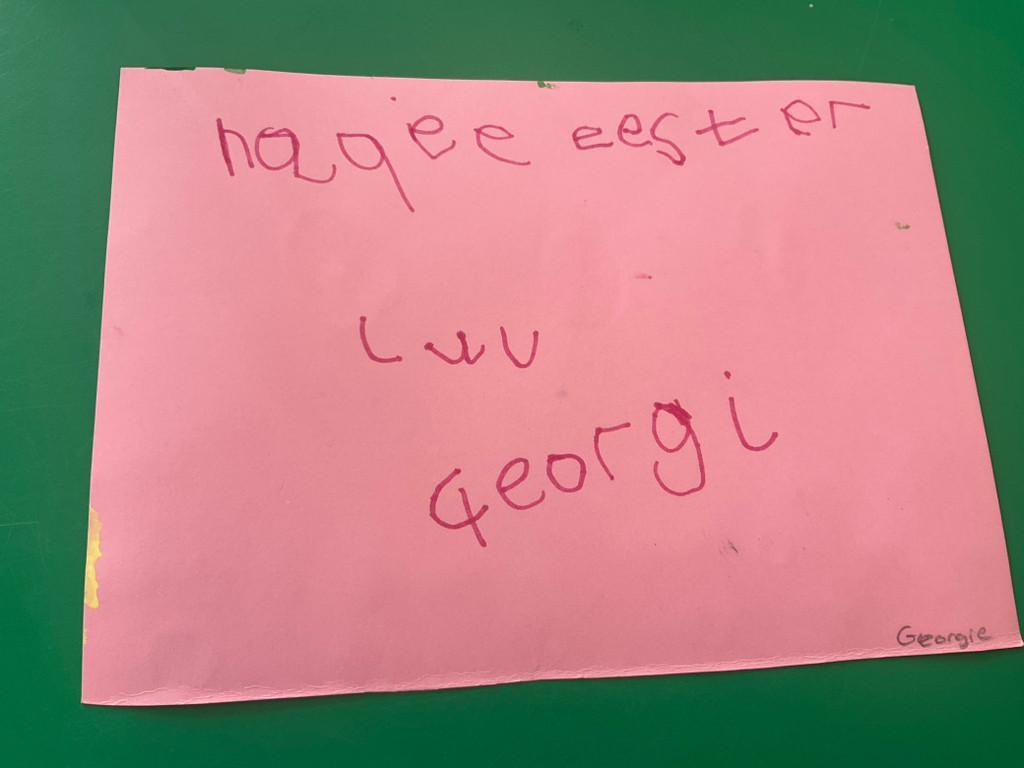 haqiee eester
luv
Georgi
Georgie